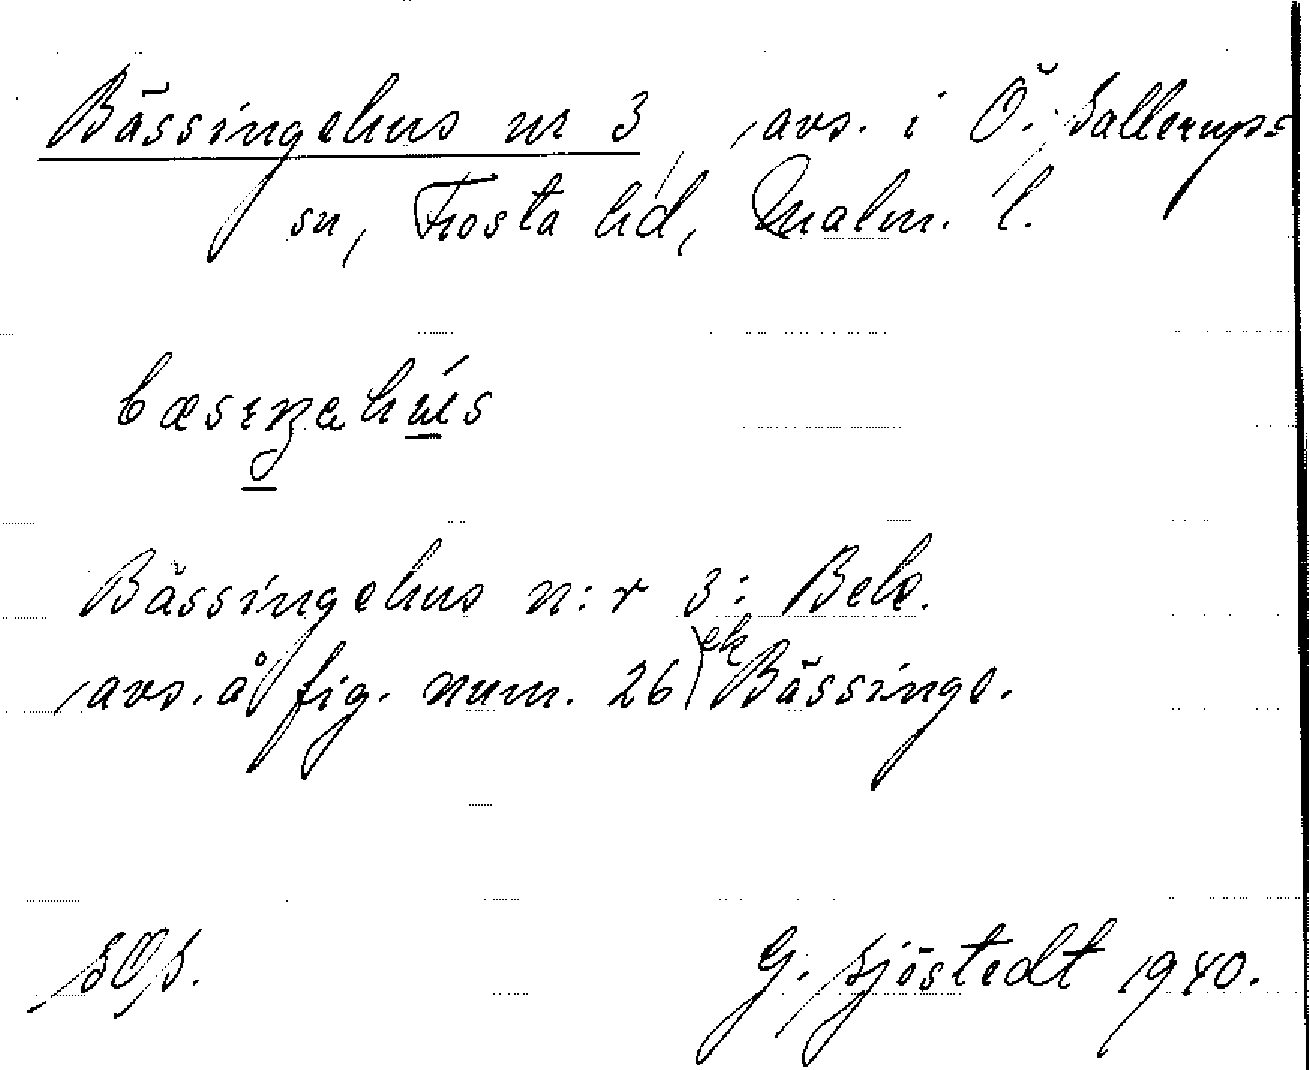 Bässingehus nr 3, avs. i Ö. Sallerups
sn, Frosta hd, Malm. l.
bæsɪŋahús
Bässingehus n:r 3: Bek.
avs. å fig. num. 26) ek Bässinge.
G. Sjöstedt 1940.